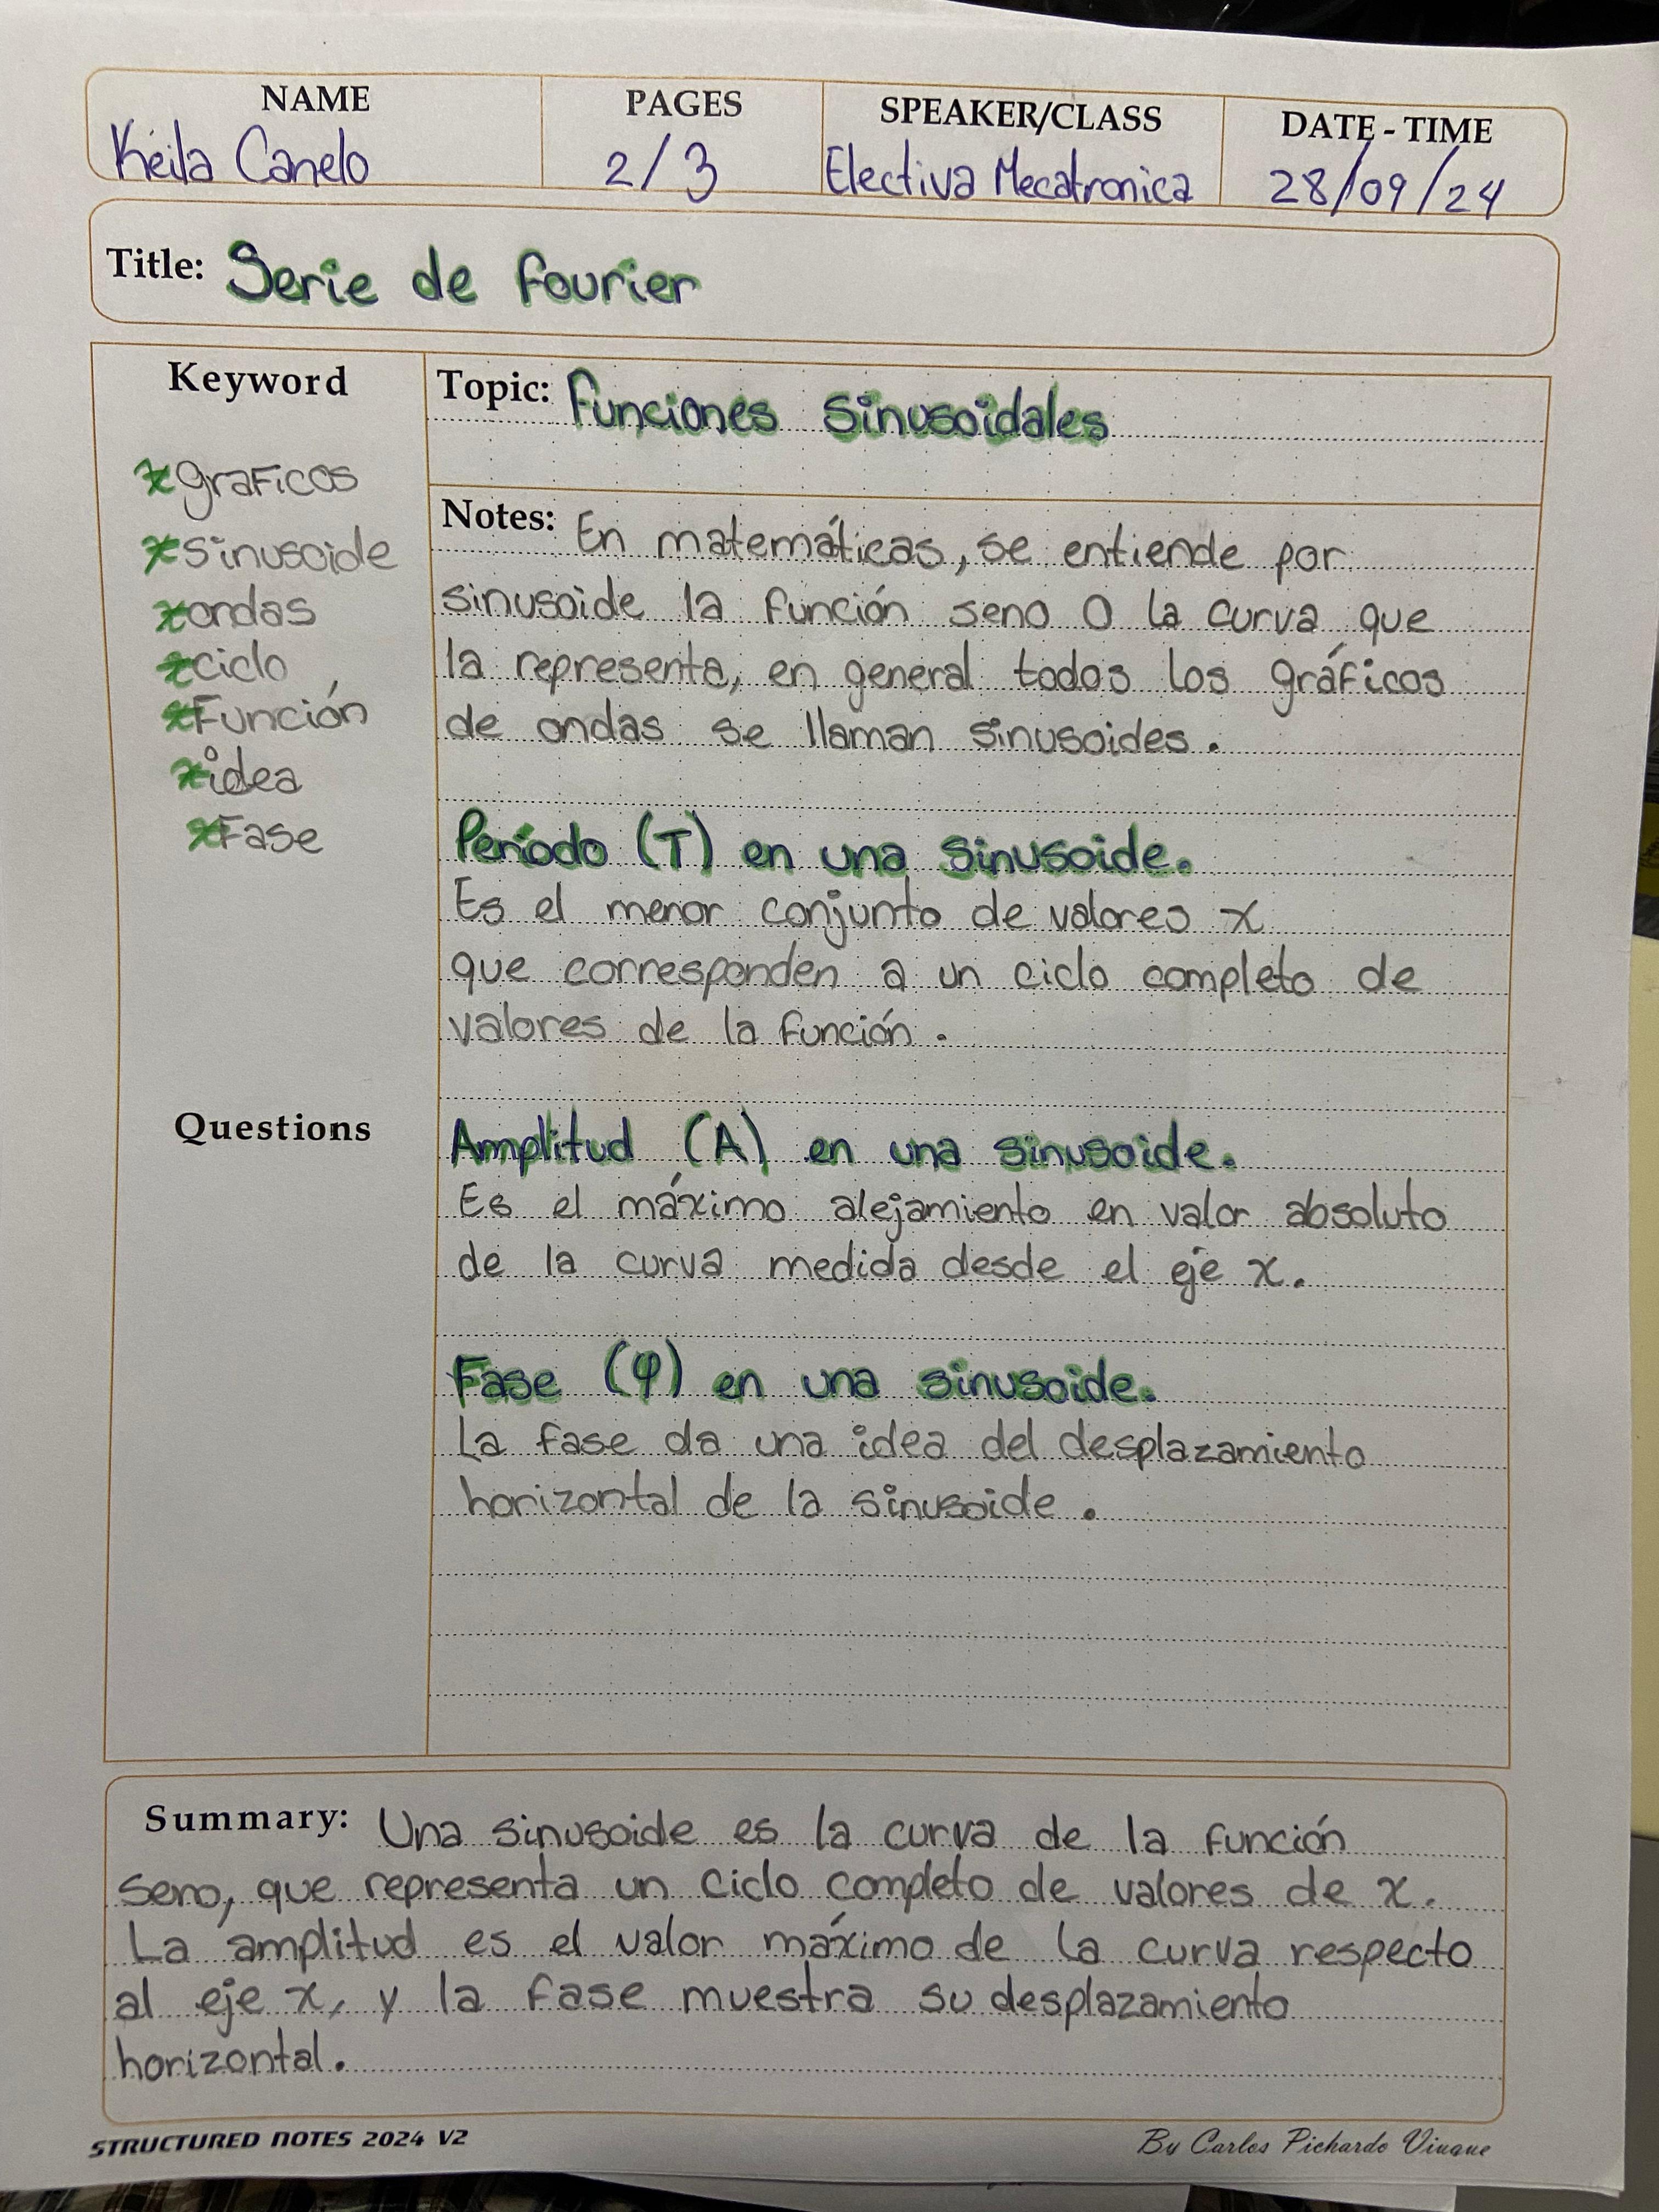 NAME PAGES SPEAKER/CLASS DATE - TIME
Keila Canelo 2/3 Electiva Mecatronica 28/09/24
Title: Serie de Fourier
Keyword
*graficos
*sinusoide
*ondas
*ciclo
*Función
*idea
*Fase
Questions
Topic: Funciones Sinusoidales
Notes: En matemáticas, se entiende por
sinusoide la función seno o la curva que
la representa, en general todos los gráficos
de ondas se llaman sinusoides.
Período (T) en una sinusoide.
Es el menor conjunto de valores x
que corresponden a un ciclo completo de
valores de la función.
Amplitud (A) en una sinusoide.
Es el máximo alejamiento en valor absoluto
de la curva medida desde el eje x.
Fase (φ) en una sinusoide.
La fase da una idea del desplazamiento
horizontal de la sinusoide.
Summary: Una sinusoide es la curva de la función
seno, que representa un ciclo completo de valores de x.
La amplitud es el valor máximo de la curva respecto
al eje x, y la fase muestra su desplazamiento
horizontal.
STRUCTURED NOTES 2024 V2 By Carlos Pichardo Viuque